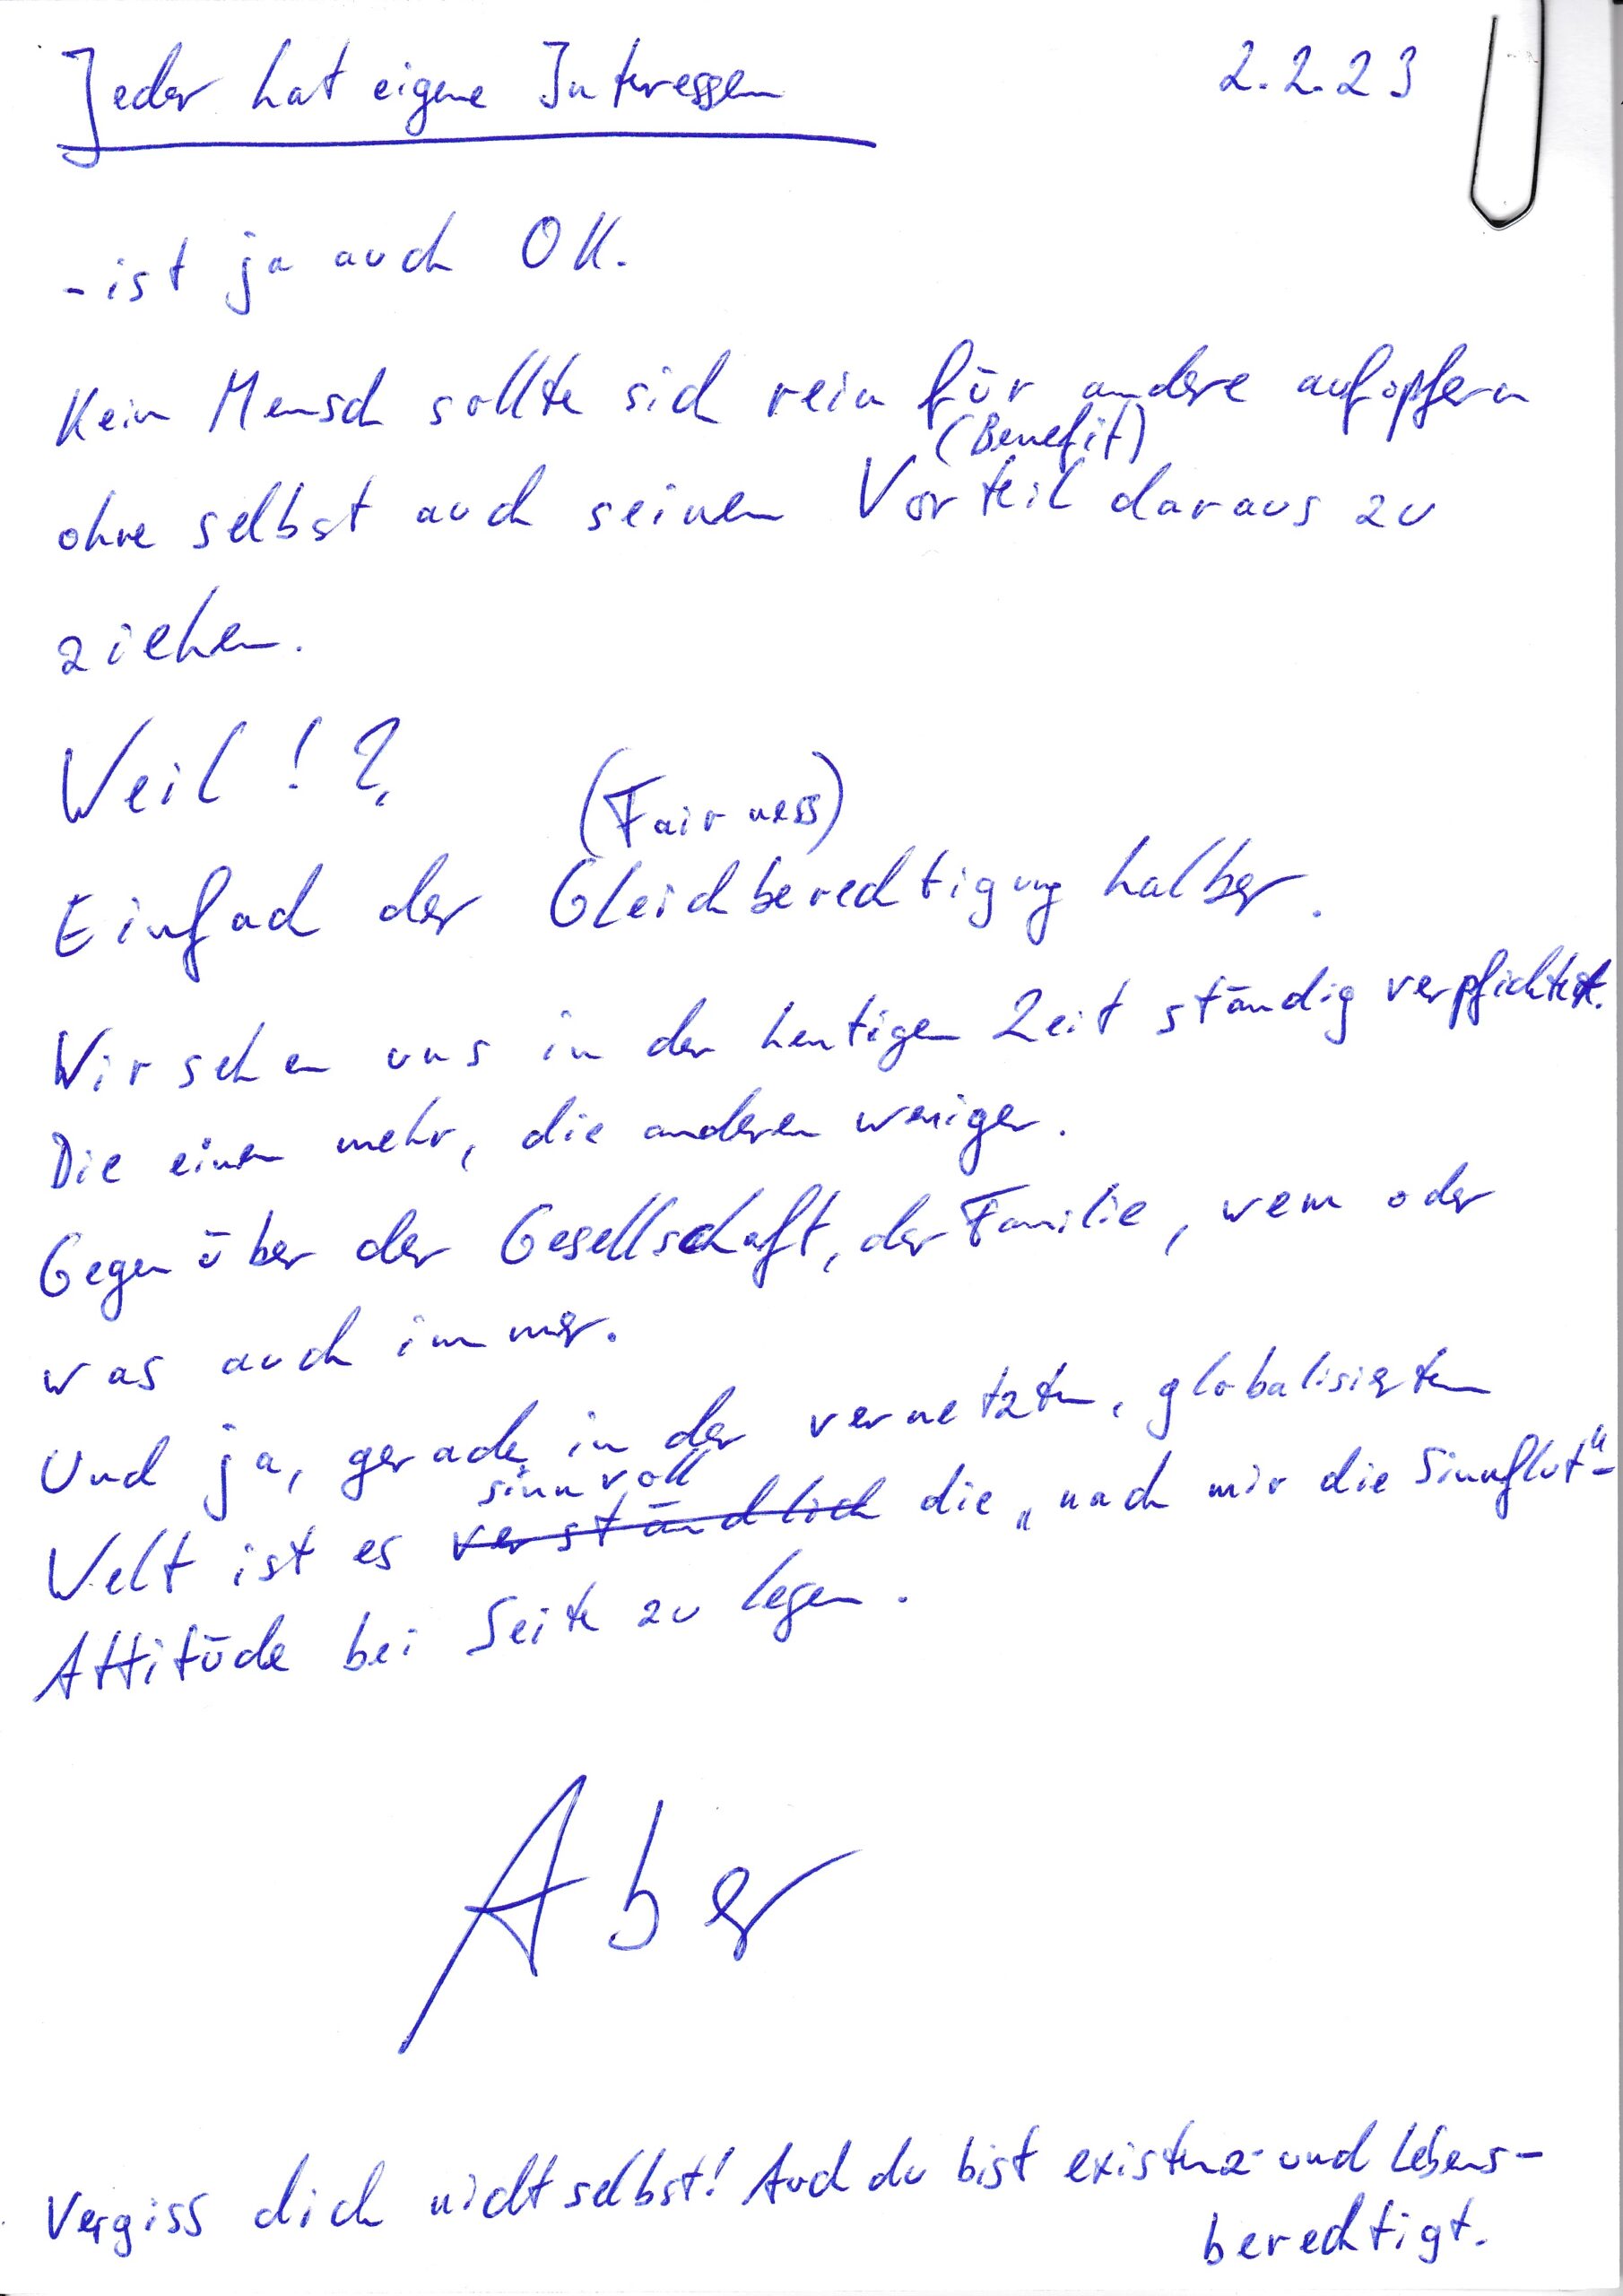 Jeder hat eigene Interessen 2.2.23
- ist ja auch OK.
Kein Mensch sollte sich rein für andere aufopfern
(Benefit)
ohne selbst auch seinen Vorteil daraus zu
ziehen.
Weil!?
(Fairness)
Einfach der Gleichberechtigung halber.
Wir sehen uns in der heutigen Zeit ständig verpfichtet.
Die einen mehr, die anderen weniger.
Gegenüber der Gesellschaft, der Familie, wem oder
was auch immer.
Und ja, gerade in der vernetzten, globalisierten
sinnvoll
Welt ist es verständlich die „nach mir die Sinnflut“-
Attitüde bei Seite zu legen.
Aber
Vergiss dich nicht selbst! Auch du bist existenz- und lebens-
berechtigt.